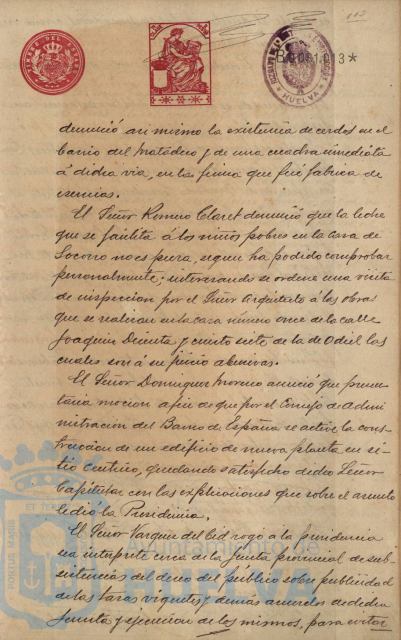 TIMBRE DEL ESTADO
B.0.061.013*
HUELVA
denunció asi mismo la existencia de cerdos en el
barrio del Matadero y de una cuadra inmediata
á dicha via, en la finca que fué fabrica de
esencias.
El Señor Romero Claret denunció que la leche
que se facilita á los niños pobres en la Casa de
Socorro no es pura, segun ha podido comprobar
personalmente; interesando se ordene una visita
de inspeccion por el Señor Arquitecto á las obras
que se realizan en la casa número once de la calle
Joaquin Dicenta y ciento siete de la de Odiel las
cuales son á su juicio abusivas.
El Señor Dominguez Moreno anunció que presen-
taria mocion a fin de que por el Consejo de Admi-
nistracion del Banco de España se active la cons-
truccion de un edificio de nueva planta en si-
tio centrico, quedando satisfecho dicho Señor
Capitular con las explicaciones que sobre el asunto
le dió la Presidencia.
El Señor Vazquez del Cid rogó a la Presidencia
sea interprete cerca de la Junta provincial de sub-
sistencias del deseo del público sobre publicidad
de las tasas vigentes y demás acuerdos de dicha
Junta y ejecucion de los mismos, para evitar
PORTUS MARIS
Ayuntamiento de
HUELVA